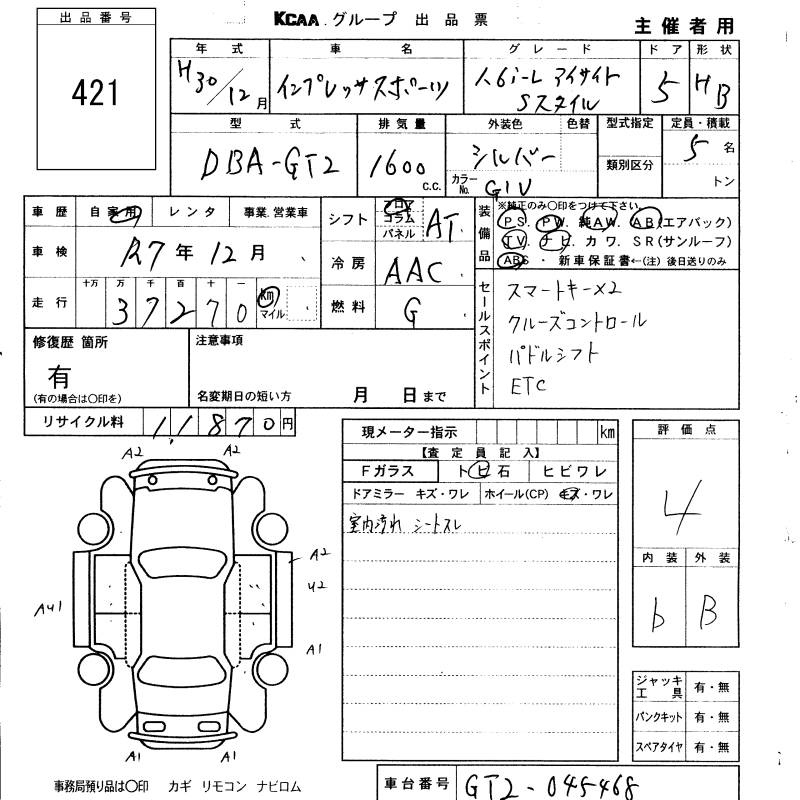 出品番号
421
KCAA グループ 出品票
主催者用
年式 車名 グレード ドア 形状
H30/12月 インプレッサスポーツ 1.6i-L アイサイト Sスタイル 5 HB
型式 排気量 外装色 色替 型式指定 定員・積載
DBA-GT2 1600 c.c. シルバー 5名
カラーNo. G1U 類別区分 トン
車歴 自家用 レンタ 事業.営業車
車検 R7年12月
走行 十万 万 千 百 十 一
37270 km マイル
シフト フロア コラム パネル AT
冷房 AAC
燃料 G
装備品 ※純正のみ○印をつけて下さい。
PS. PW. 純AW. AB(エアバック)
TV. ナビ. カワ. SR(サンルーフ)
ABS ・ 新車保証書←(注)後日送りのみ
セールスポイント
スマートキー×2
クルーズコントロール
パドルシフト
ETC
修復歴 箇所
有
(有の場合は○印を)
注意事項
名変期日の短い方 月 日まで
リサイクル料 11870円
現メーター指示 km
【査定員記入】
Fガラス トビ石 ヒビワレ
ドアミラー キズ・ワレ ホイール(CP) キズ・ワレ
室内汚れ シートスレ
評価点
4
内装 外装
b B
ジャッキ工具 有・無
パンクキット 有・無
スペアタイヤ 有・無
A2 A2
A2
U2
AU1
A1
A1 A1
事務局預り品は○印 カギ リモコン ナビロム
車台番号 GT2-045468